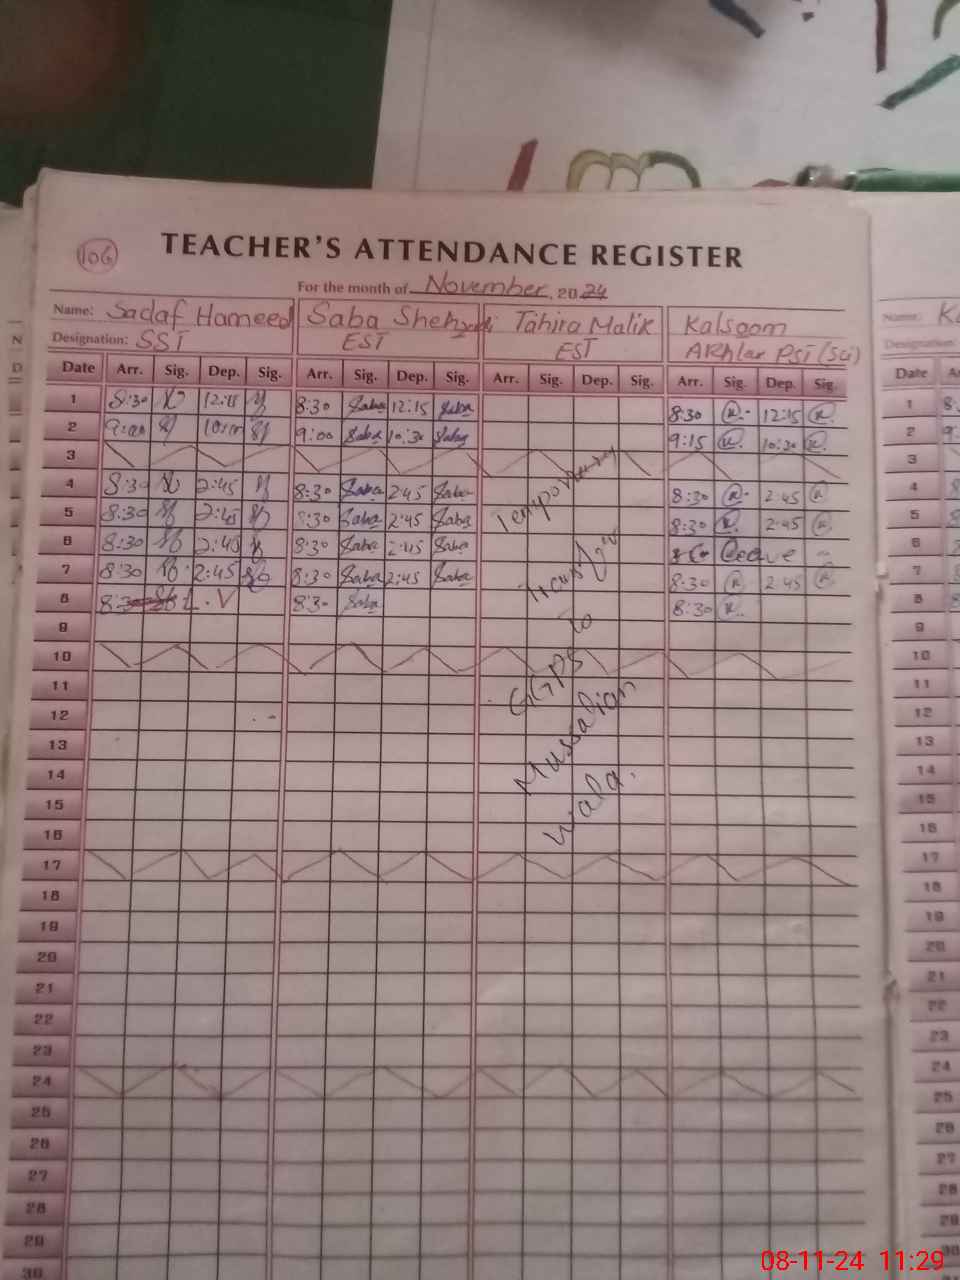 106
TEACHER'S ATTENDANCE REGISTER
For the month of November, 2024
Name: Sadaf Hameed Saba Shehzadi Tahira Malik Kalsoom
Designation: SST EST EST Akhtar PST (Sci)
Date Arr. Sig. Dep. Sig. Arr. Sig. Dep. Sig. Arr. Sig. Dep. Sig. Arr. Sig. Dep. Sig.
1 8:30 8:30 Saba 12:15 Saba 8:30 12:15
2 9:00 Saba 10:30 Saba 9:15 10:30
3
4 8:30 2:45 8:30 Saba 2:45 Saba 8:30 2:45
5 8:30 2:45 8:30 Saba 2:45 Saba 8:30 2:45
6 8:30 2:45 8:30 Saba 2:45 Saba Leave
7 8:30 2:45 8:30 Saba 2:45 Saba 8:30 2:45
8 8:30 Saba 8:30
9
10
11
12
13
14
15
16
17
18
19
20
21
22
23
24
25
26
27
28
29
30
Temporary
Transfer
To
GGPS
Mussalian
wala.
Name: K
Date
1
2
3
4
5
6
7
8
9
10
11
12
13
14
15
16
17
18
19
20
21
22
23
24
25
26
27
28
29
30
08-11-24 11:29